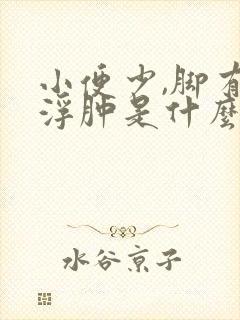 小便少,脚有
浮肿是什麼
水谷京子